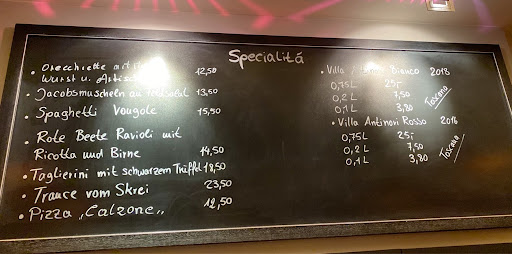 Specialitá
• Orecchiette mit
Wurst u. Artisch 12,50
• Jacobsmuscheln auf 13,50
• Spaghetti Vougole 15,50
• Rote Beete Ravioli mit
Ricotta und Birne 14,50
• Taglierini mit schwarzem Trüffel 18,50
• Trance vom Skrei 23,50
• Pizza „Calzone„ 12,50
• Villa Bianco 2018
0,75L 25,-
0,2 L 7,50
0,1 L 3,80
Toscana
• Villa Antinori Rosso 2016
0,75L 25,-
0,2 L 7,50
0,1 L 3,80
Toscana